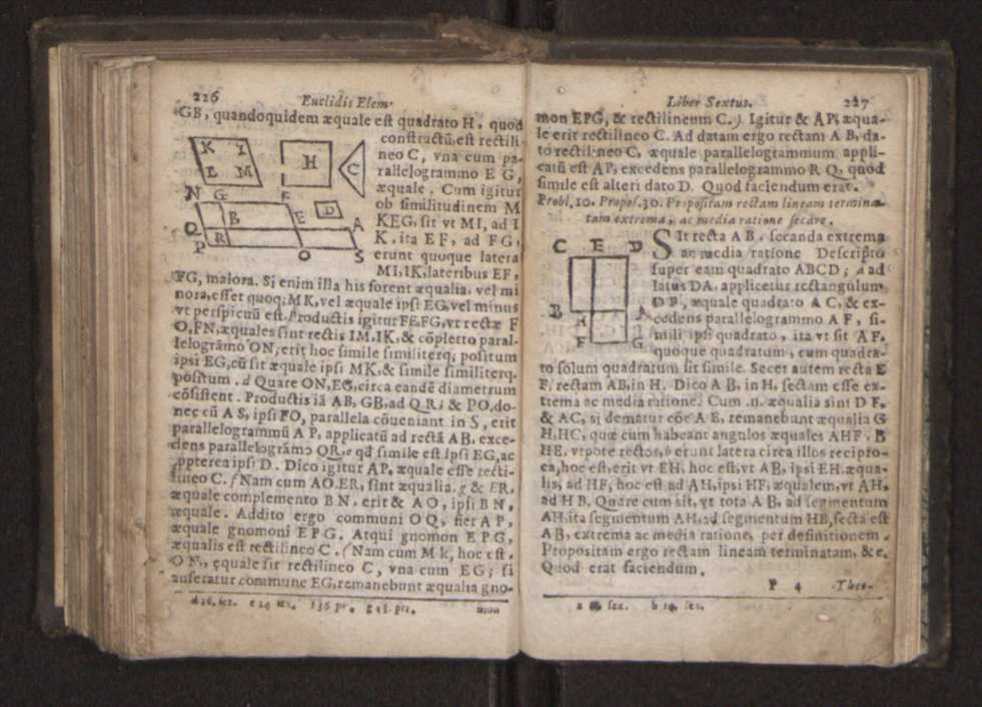 226
Euclidis Elem.
GB, quandoquidem æquale est quadrato H, quod
constructũ est rectili
neo C, vna cum pa-
rallelogrammo E G,
æquale. Cum igitur
ob similitudinem M
KEG, sit vt MI, ad I
K, ita EF, ad FG,
erunt quoque latera
MI,IK,lateribus EF,
FG, maiora. Si enim illa his forent æqualia, vel mi
nora, esset quoq; MK, vel æquale ipsi EG, vel minus
vt perspicuũ est. Productis igitur FE,FG, vt rectæ F
O,FN, æquales sint rectis IM,IK, & cõpletto paral-
lelogrãmo ON, erit hoc simile similiterq; positum
ipsi EG, cũ sit æquale ipsi MK, & simile similiterq.
positum. d Quare ON,EG, circa eandẽ diametrum
cõsistent. Productis iã AB, GB, ad Q R; & PO, do-
nec cũ A S, ipsi FO, parallela cõueniant in S, erit
parallelogrammũ A P, applicatũ ad rectã AB, exce-
dens parallelogrãmo QR, e qd simile est ipsi EG, ac
ppterea ipsi D. Dico igitur AP, æquale esse recti-
lineo C. f Nam cum AO,ER, sint æqualia. g & ER,
æquale complemento BN, erit & AO, ipsi BN,
æquale. Addito ergo communi OQ, fiet A P,
æquale gnomoni EPG. Atqui gnomon EPG,
æqualis est rectilineo C. (Nam cum M k, hoc est,
ON, ęquale sit rectilineo C, vna cum EG; si
auferatur commune EG, remanebunt æqualia gno-
mon
K I
L M
H
C
N G F
B E D A
Q
P R O S
227
Liber Sextus.
mon EPG, & rectilineum C.) Igitur & AP, æqua-
le erit rectilineo C. Ad datam ergo rectam A B, da-
to rectilineo C, æquale parallelogrammum appli-
catũ est AP, excedens parallelogrammo R Q, quod
simile est alteri dato D. Quod faciendum erat.
Probl. 10. Propos. 30. Propositam rectam lineam termina-
tam extrema, ac media ratione secare.
SIt recta A B, secanda extrema
ac media ratione Descripto
super eam quadrato ABCD; a ad
latus DA, applicetur rectangulum
D F, æquale quadrato A C, & ex-
cedens parallelogrammo A F, si-
mili ipsi quadrato, ita vt sit AF,
quoque quadratum, cum quadra-
to solum quadratum sit simile. Secet autem recta E
F, rectam AB, in H. Dico A B, in H, sectam esse ex-
trema ac media ratione. Cum .n. æqualia sint D F,
& AC, si dematur cõe A E, remanebunt æqualia G
H,HC, quæ cum habeant angulos æquales AHF, B
HE, vtpote rectos, b erunt latera circa illos recipro-
ca, hoc est, erit vt EH, hoc est, vt AB, ipsi EH, æqua-
lis, ad HF; hoc est ad AH, ipsi HF, æqualem, vt AH,
ad H B. Quare cum sit, vt tota A B, ad segmentum
AH, ita segmentum AH, ad segmentum HB, secta est
A B, extrema ac media ratione, per definitionem.
Propositam ergo rectam lineam terminatam, &c.
Quod erat faciendum.
P 4 Theo-
C E D
B H A
F G